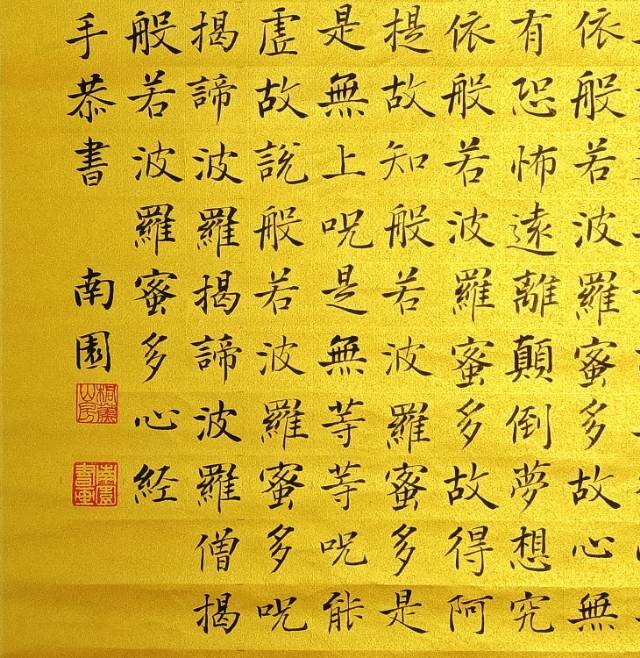 依般若波羅蜜多故心無
有恐怖遠離顛倒夢想究
依般若波羅蜜多故得阿
提故知般若波羅蜜多是
是無上呪是無等等呪能
虛故説般若波羅蜜多呪
揭諦波羅揭諦波羅僧揭
般若波羅蜜多心経
手恭書 南園